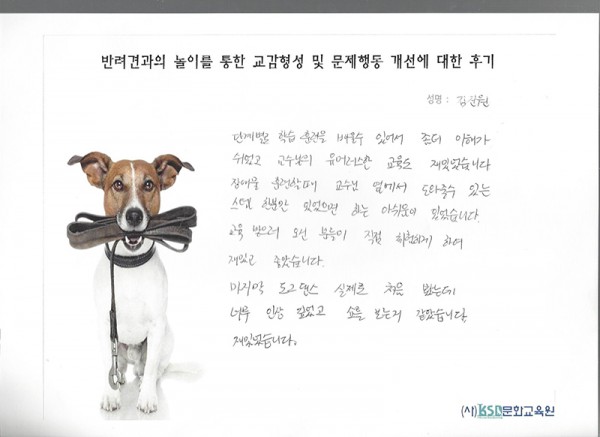 반려견과의 놀이를 통한 교감형성 및 문제행동 개선에 대한 후기
성명 : 김진원
단계별로 학습 훈련을 배울수 있어서 좀더 이해가
쉬웠고 교수님의 유머러스한 교육도 재밌었습니다
장애물 훈련할때 교수님 옆에서 도와줄수 있는
스텝 한분만 있었으면 하는 아쉬움이 있었습니다.
교육 받으러 오신 분들이 직접 체험하게 하여
재밌고 좋았습니다.
마지막 도그댄스 실제로 처음 봤는데
너무 인상 깊었고 쇼를 보는거 같았습니다
재밌었습니다.
(사)KSD문화교육원